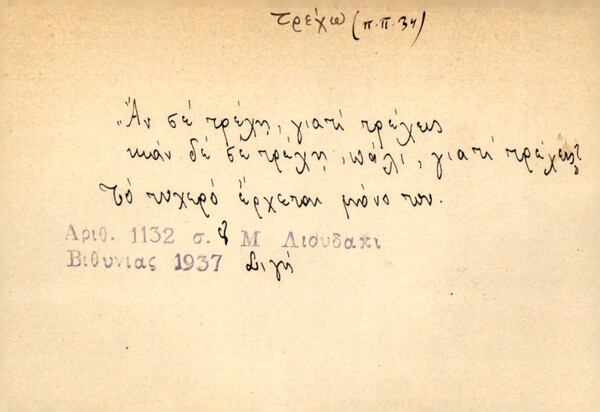 τρέχω (π.π. 34)
„Ἄν σέ τρέχῃ, γιατί τρέχεις
κιἄν δέ σέ τρέχῃ, πάλι, γιατί τρέχεις;
Τό τυχερό ἔρχεται μόνο του.
Αριθ. 1132 σ. Μ Λιουδακι
Βιθυνιας 1937 Σιγή